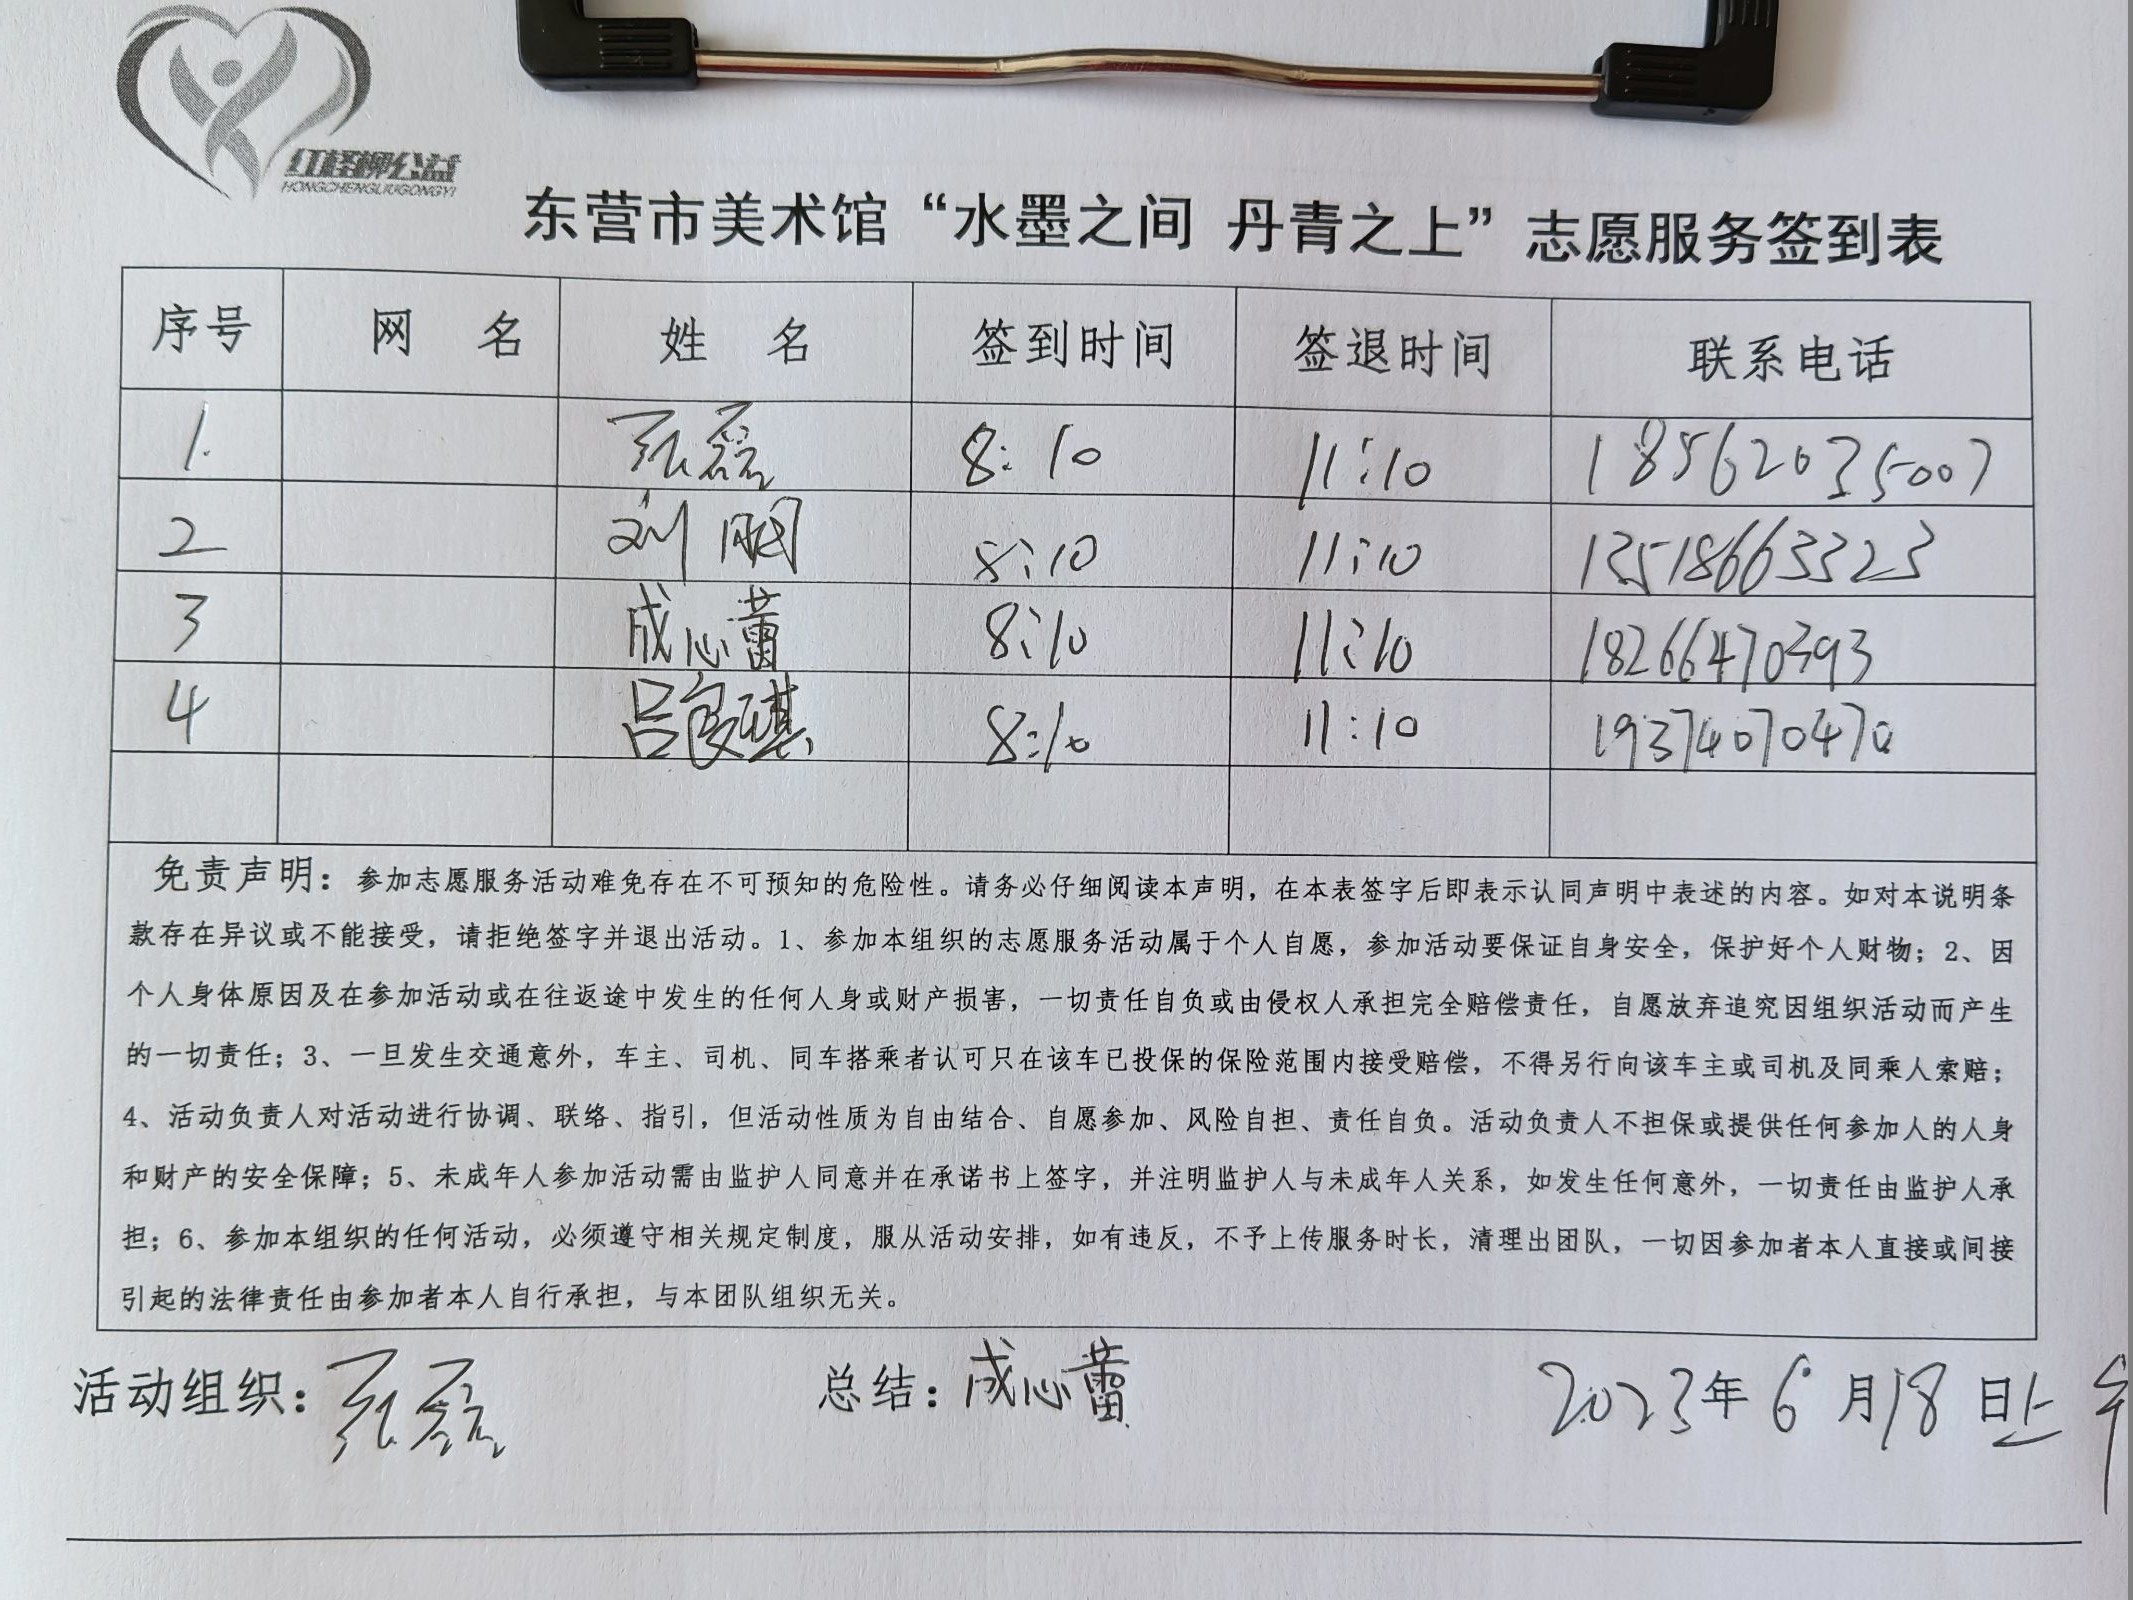 红柽柳公益
HONGCHENGLIUGONGYI
东营市美术馆“水墨之间 丹青之上”志愿服务签到表
序号 网 名 姓 名 签到时间 签退时间 联系电话
1. 张磊 8:10 11:10 18562035007
2 刘 8:10 11:10 13518663323
3 成心蕾 8:10 11:10 18266470393
4 吕良琪 8:10 11:10 19374070470
免责声明：参加志愿服务活动难免存在不可预知的危险性。请务必仔细阅读本声明，在本表签字后即表示认同声明中表述的内容。如对本说明条
款存在异议或不能接受，请拒绝签字并退出活动。1、参加本组织的志愿服务活动属于个人自愿，参加活动要保证自身安全，保护好个人财物；2、因
个人身体原因及在参加活动或在往返途中发生的任何人身或财产损害，一切责任自负或由侵权人承担完全赔偿责任，自愿放弃追究因组织活动而产生
的一切责任；3、一旦发生交通意外，车主、司机、同车搭乘者认可只在该车已投保的保险范围内接受赔偿，不得另行向该车主或司机及同乘人索赔；
4、活动负责人对活动进行协调、联络、指引，但活动性质为自由结合、自愿参加、风险自担、责任自负。活动负责人不担保或提供任何参加人的人身
和财产的安全保障；5、未成年人参加活动需由监护人同意并在承诺书上签字，并注明监护人与未成年人关系，如发生任何意外，一切责任由监护人承
担；6、参加本组织的任何活动，必须遵守相关规定制度，服从活动安排，如有违反，不予上传服务时长，清理出团队，一切因参加者本人直接或间接
引起的法律责任由参加者本人自行承担，与本团队组织无关。
活动组织：张磊 总结：成心蕾 2023年6月18日上午